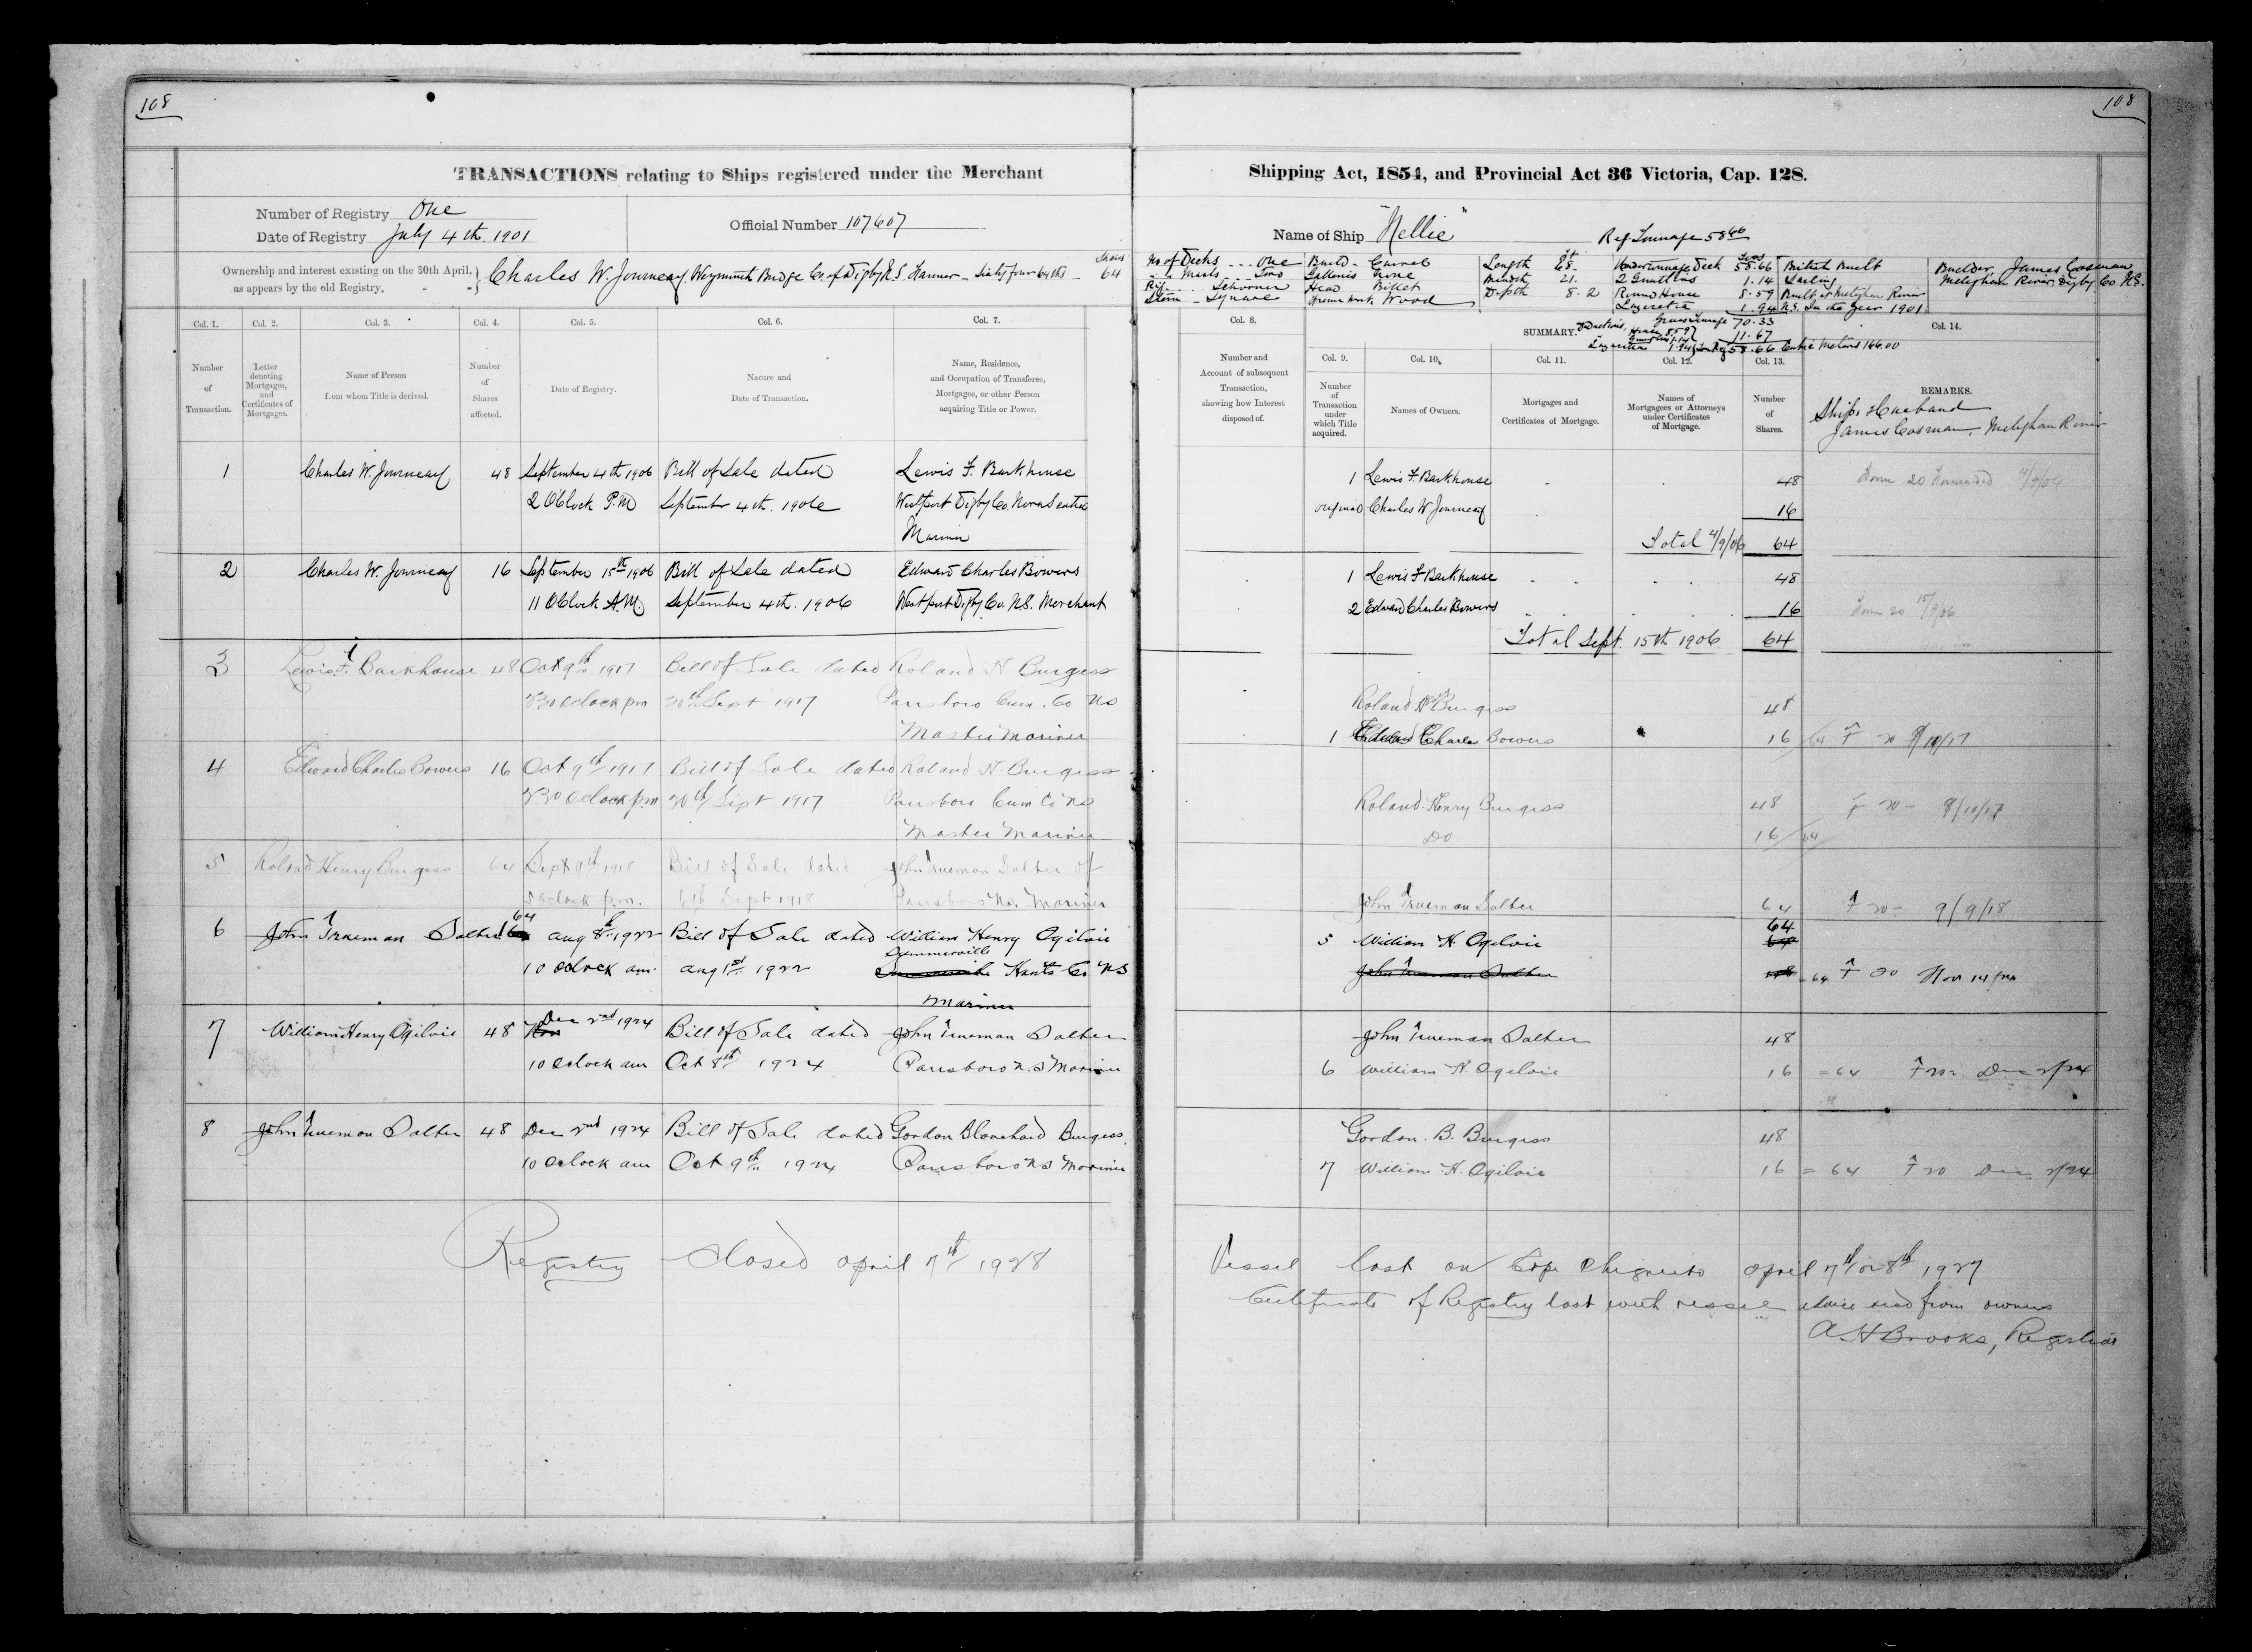 108
108
TRANSACTIONS relating to Ships registered under the Merchant
Shipping Act, 1854, and Provincial Act 36 Victoria, Cap. 128.
Number of Registry One
Date of Registry July 4th. 1901
Official Number 107607
Name of Ship "Nellie"
Reg. Tonnage 58 66
Ownership and interest existing on the 30th April,
as appears by the old Registry.
Charles W. Journeay, Weymouth Bridge Co. of Digby N.S. Farmer - Sixty four 64ths -
Shares
64
No of Decks ... One
" " Masts ... Two
Rig ... Schooner
Stern - Square
Build - Carvel
Galleries None
Head Billet
Framework Wood
Length 68.
Breadth 21.
Depth 8.2
Under tonnage Deck 58.66
1.14
Round House 8.59
Lazerette 1.94
British Built
Sailing
Built at Meteghan River
N.S. In the Year 1901.
Builder, James Cosman
Meteghan River, Digby Co N.S.
Gross Tonnage 70.33
11.67
58.66 Cubic Metres 166.00
Col. 1.
Number
of
Transaction.
Col. 2.
Letter
denoting
Mortgages,
and
Certificates of
Mortgages.
Col. 3.
Name of Person
from whom Title is derived.
Col. 4.
Number
of
Shares
affected.
Col. 5.
Date of Registry.
Col. 6.
Nature and
Date of Transaction.
Col. 7.
Name, Residence,
and Occupation of Transferee,
Mortgagee, or other Person
acquiring Title or Power.
Col. 8.
Number and
Account of subsequent
Transaction,
showing how Interest
disposed of.
SUMMARY.
Col. 9.
Number
of
Transaction
under
which Title
acquired.
Col. 10.
Names of Owners.
Col. 11.
Mortgages and
Certificates of Mortgage.
Col. 12.
Names of
Mortgagees or Attorneys
under Certificates
of Mortgage.
Col. 13.
Number
of
Shares.
Col. 14.
REMARKS.
Ships Husband
James Cosman, Meteghan River
1 Charles W. Journeay 48 September 4th 1906 Bill of Sale dated Lewis F. Barkhouse
2 OClock P.M September 4th. 1906 Westport Digby Co. Nova Scotia
Mariner
1 Lewis F. Barkhouse 48 Form 20 Forwarded 4/9/06
original Charles W Journeay 16
Total 4/9/06 64
2 Charles W. Journeay 16 September 15th 1906 Bill of Sale dated Edward Charles Bowers
11 OClock A.M. September 4th. 1906 Westport Digby Co. N.S. Merchant
1 Lewis F Barkhouse 48
2 Edward Charles Bowers 16 Form 20 15/9/06
Total Sept. 15th 1906 64
3 Lewis F. Barkhouse 48 Oct 9th 1917 Bill of Sale dated Roland H Burgess
oclock pm 20th Sept 1917 Parrsboro Cum. Co NS
Master Mariner
Roland H Burgess 48
1 Edward Charles Bowers 16/64 F 20 9/10/17
4 Edward Charles Bowers 16 Oct 9th 1917 Bill of Sale dated Roland H. Burgess
2.30 oclock p.m 20th Sept 1917 Parrsboro Cum Co NS
Master Mariner
Roland Henry Burgess 48 F 20 - 9/10/17
Do 16/64
5 Roland Henry Burgess 64 Sept 9th 1918 Bill of Sale dated John Trueman Salter of
oclock p.m. 6th Sept 1918 Parrsboro NS. Mariner
John Trueman Salter 64 F 20 - 9/9/18
6 John Trueman Salter 64 Aug 8th 1922 Bill of Sale dated William Henry Ogilvie
10 oclock am. Aug 1st 1922 Summerville Hants Co NS
Mariner
5 William H. Ogilvie 64
John Trueman Salter = 64 F 20 Nov 14/24
7 William Henry Ogilvie 48 Nov Dec 2nd 1924 Bill of Sale dated John Trueman Salter
10 oclock am Oct 8th 1924 Parrsboro N.S Mariner
John Trueman Salter 48
6 William H. Ogilvie 16 = 64 F 20 Dec 2/24
8 John Trueman Salter 48 Dec 2nd 1924 Bill of Sale dated Gordon Blanchard Burgess
10 oclock am Oct 9th 1924 Parrsboro NS Mariner
Gordon. B. Burgess 48
7 William H. Ogilvie 16 = 64 F 20 Dec 2/24
Registry Closed April 7th 1928
Vessel lost on Cape Chignecto April 7th or 8th 1927
Certificate of Registry lost with vessel advice recd from owners
A H Brooks, Registrar